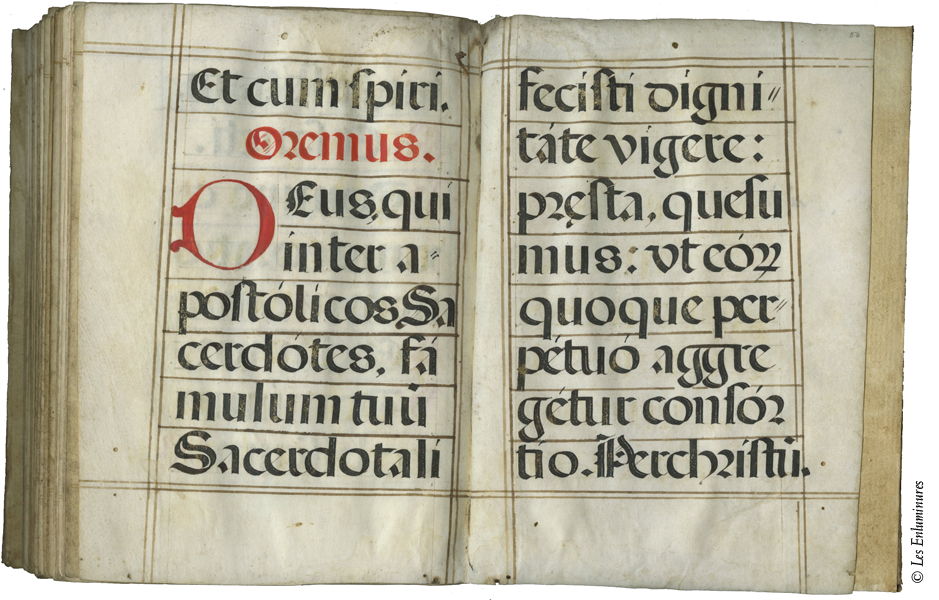 Et cum spiri.
Oremus.
Deus, qui
inter a-
postólicos Sa
cerdótes, fá
mulum tuū
Sacerdotali
fecisti digni-
táte vígere:
pręsta, quesu
mus: vt eóꝝ
quoque per-
pétuó aggre
gétur consór
tio. Per christū.
© Les Enluminures